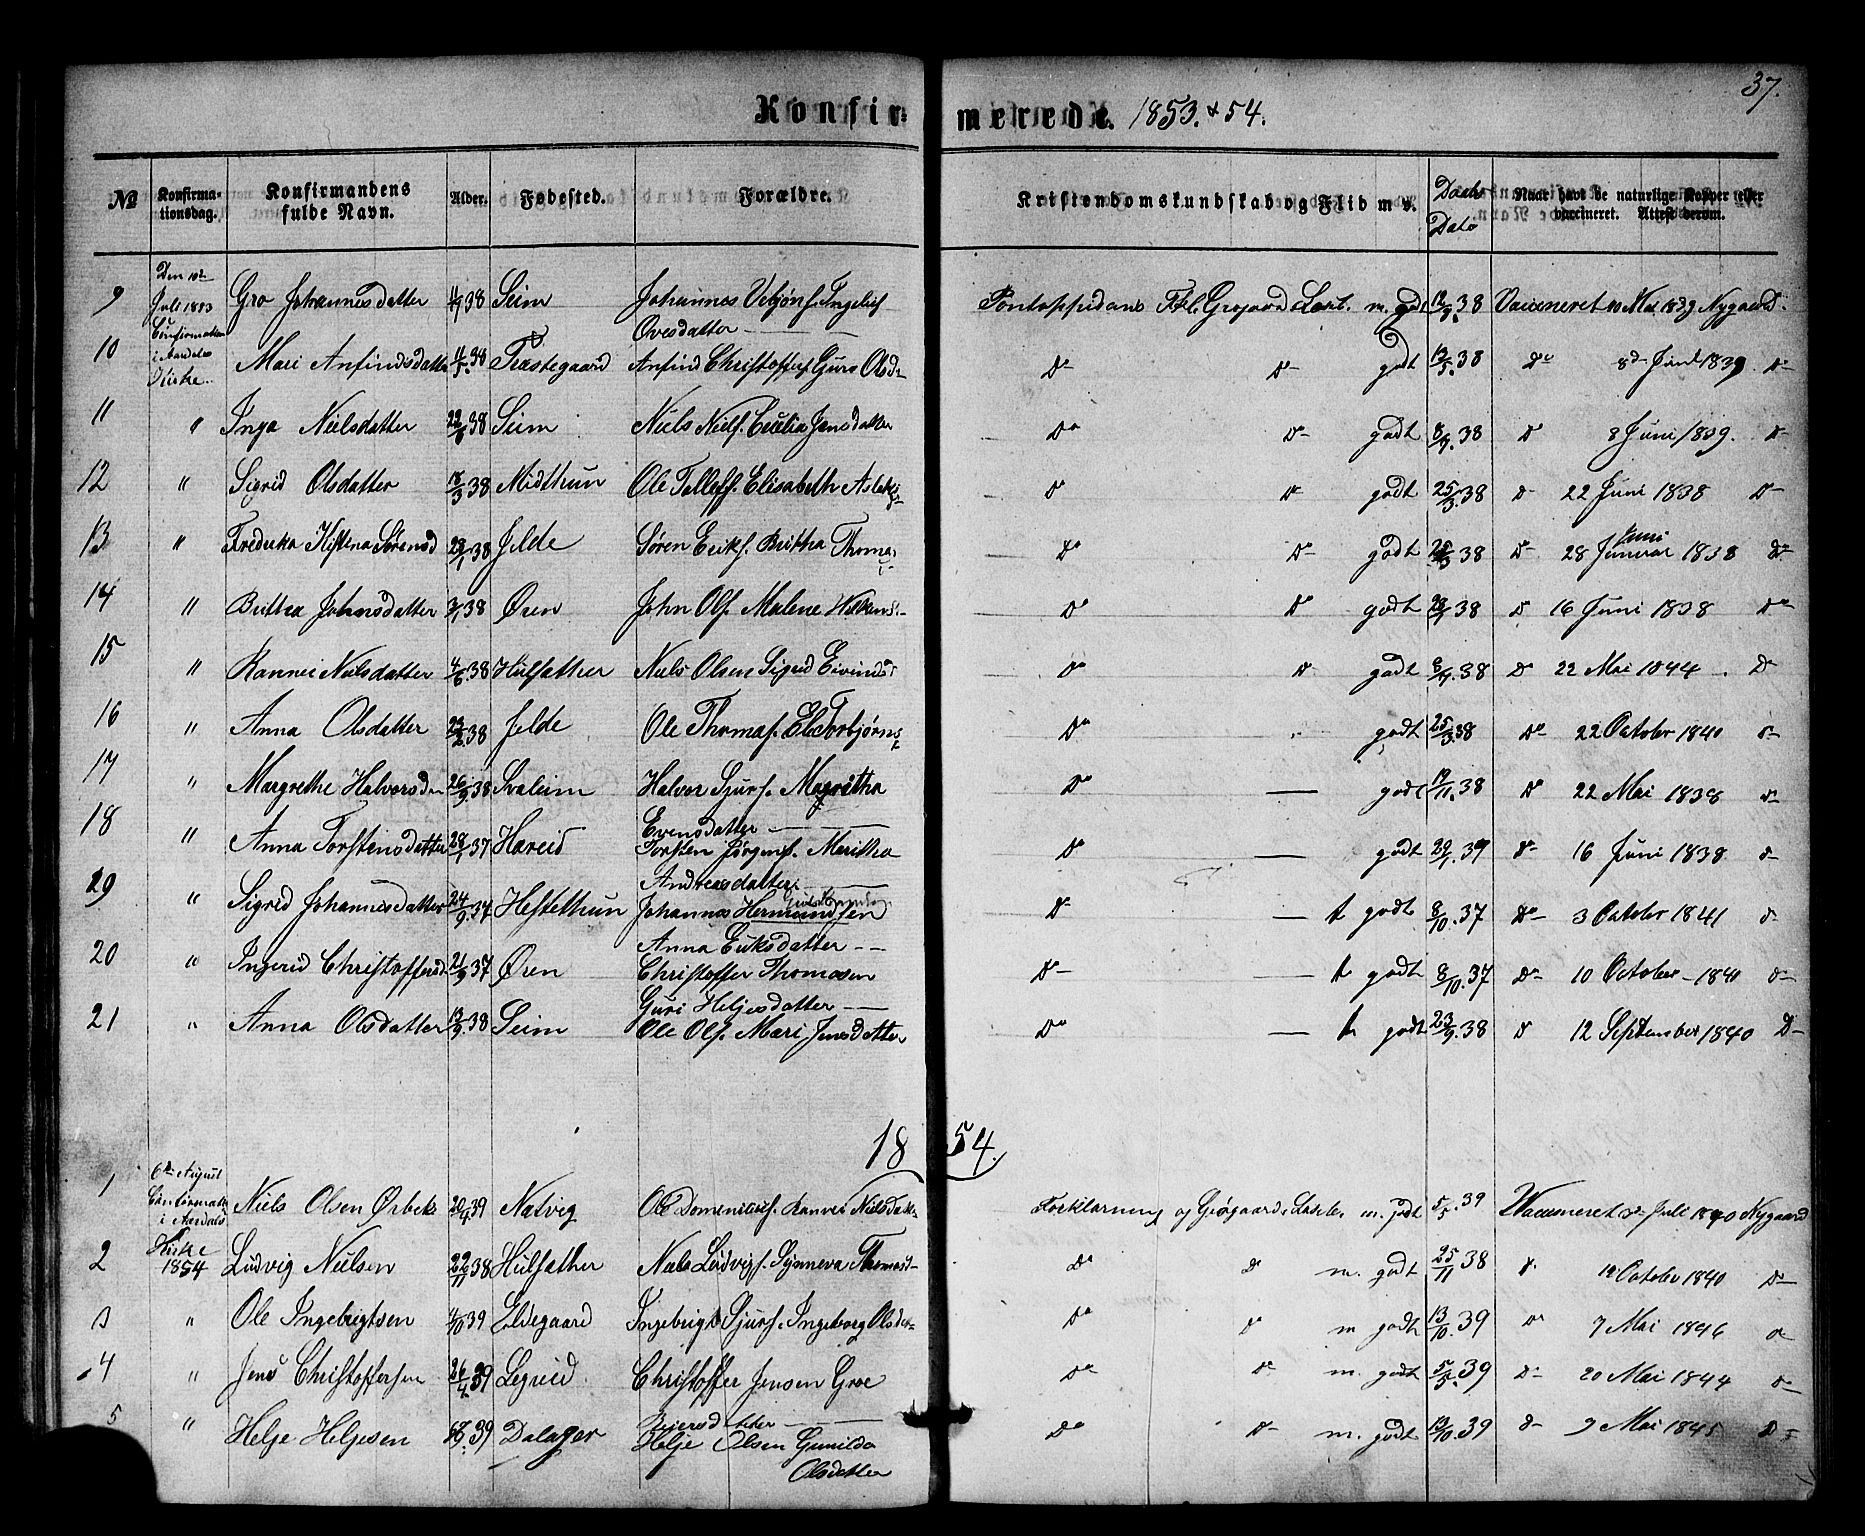 37.
Konfir= merede. 1853. & 54.
№ Konfirma-tionsdag. Konfirmandens fulde Navn. Alder. Fødested. Forældre. Kristendomskundskab og Flid m. v. Daabs Dato Naar havt de naturlige Kopper eller vaccineret. Attest derom.
9 Den 10de Juli 1853 Gro Johannesdatter 38 Seim Johannes Vebjønf. Ingeleif Ovesdatter Pontoppidans Fkl. Grogaard Læsb. m. godt 38 Vaccineret Mai 1839 Nygaard.
10 Confirmation i Aardals Kirke. Mari Anfindsdatter 38 Træstegaard Anfind Christoffers. Guro Olsd. Do Do godt 13/5. 38 Do 8de Juni 1839 Do
11 " Inga Nielsdatter 38 Seim Niels Nielf. Cecilia Jensdatter Do Do godt 38 Do 8 Juni 1839. Do
12 " Sigrid Olsdatter 18/3 38 Midtthun Ole Tollefs. Elisabeth Aslaks Do Do godt 25/3. 38 Do 22 Juni 1838 Do
13 " Fredrika Kistena Sørensd 38 Jelde Søren Eriks. Brittha Thomas Do Do godt 38 Do 28 Juni 1838 Do
14 " Brittha Johnsdatter 38 Øren John Olf. Malene Do Do godt 38 Do 16 Juni 1838 Do
15 " Rannei Nielsdatter 38 Hülsæther Niels Olsen Sigrid Eivindsd Do Do godt 38 Do 22 Mai 1844 Do
16 " Anna Olsdatter 23/2 38 Jelde Ole Thomas. Eli Torbjørns Do " godt 25/3 38 Do 22 October 1840 Do
17 " Margrethe Halvorsd 26/9. 38 Svaleim Halvor Sjurs. Magretha Evensdatter Do — godt 19/11. 38 Do 22 Mai 1838 Do
18 " Anna Torstensdatter 28/1 37 Hareid Torsten Jørgens. Maritha Andreasdatter Do — godt 29/1. 39 Do 16 Juni 1838 Do
29 " Sigrid Johannesdatter 24/9. 37 Hestethun Johannes Hermundsen Anna Eriksdatter Do — t godt 8/10. 37 Do 3 October 1841 Do
20 " Ingerid Christoffersd 21/9 37 Øren Christoffer Thomasen Guri Heljesdatter Do — t godt 8/10. 37 Do 10 October 1840 Do
21 " Anna Olsdatter 13/9. 38 Seim Ole Olf. Mari Jensdatter Do — t godt 23/9. 38 Do 12 September 1840 Do
1854.
1 6te August Confirmation i Aardals Niels Olsen Ørbeks 20/4 39 Natvig Ole Rannei Nielsdatter Forklaring og Grøgaards Læseb. m. godt 5/5. 39 Vaccineret Juli 1840 Nygaard
2 Kirke 1854 Ludvig Nielsen 22/11 38 Hülsæther Niels Ludvigs. Synneva Thomasd Do Do m. godt 25/11 38 Do October 1840 Do
3 " Ole Ingebrigtsen 4/10 39 Eldegaard Ingebrigt Sjurs. Ingeborg Olsdtr Do Do m godt 13/10. 39 Do 7 Mai 1846 Do
4 " Jens Christoffersen 26/4. 39 Legreid Christoffer Jensen Groe Beiersdatter Do Do m. godt 5/5. 39 Do 20 Mai 1844 Do
5 " Helje Heljesen 39 Dalager Helje Olsen Gunilda Olsdatter Do Do m. godt 13/10. 39 Do 7 Mai 1845 Do